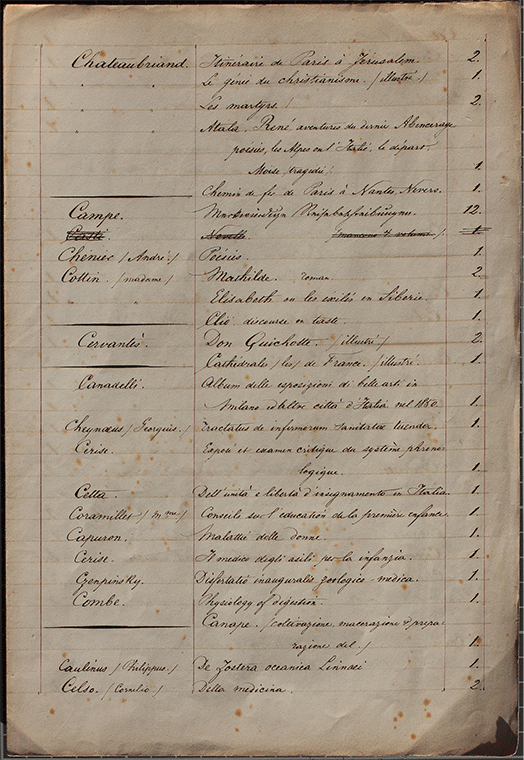 Chateaubriand. Itinéraire de Paris à Jérusalem. 2.
" Le génie du christianisme. /illustré/ 1.
" Les martyrs. / 2.
" Atala, René aventures du dernier Abencerage
poésies, les Alpes ou l'Italie, le départ,
Moïse, tragédie/. 1.
Chemin de fer de Paris à Nantes, Nevers. 1.
Campe. 12.
Casti Novelle volume 1.
Chenier /André/ Poésies. 1.
Cottin. /madame/ Mathilde. roman. 2.
" Elisabeth ou les exilés en Siberie. 1.
Clio discourse on taste. 1.
Cervantès. Don Quichotte. /illustré/ 2.
Cathédrales /les/ de France. /illustré. 1.
Canadelli. Album delle esposizioni di belle arti in
Milano ed altre città d'Italia nel 1850. 1.
Cheynæus /Georgius./ Tractatus de infirmorum sanitate tuenda. 1.
Cerise. Exposé et examen critique du système phrenologique. 1.
Cetta. Dell'unità e libertà d'insegnamento in Italia. 1.
Coramilles /Mme/ Conseils sur l'education de la première enfance. 1.
Capuron. Malattie delle donne. 1.
Cerise. Il medico degli asili per la infanzia. 1.
Czenpinsky. Disertatio inauguralis zoologico-medica. 1.
Combe. Physiology of digestion. 1.
Canape. /coltivazione, macerazione e preparazione del/ 1.
Caulinus /Philippus./ De Zostera oceanica Linnaei 1.
Celso. /Cornelio/ Della medicina. 2.